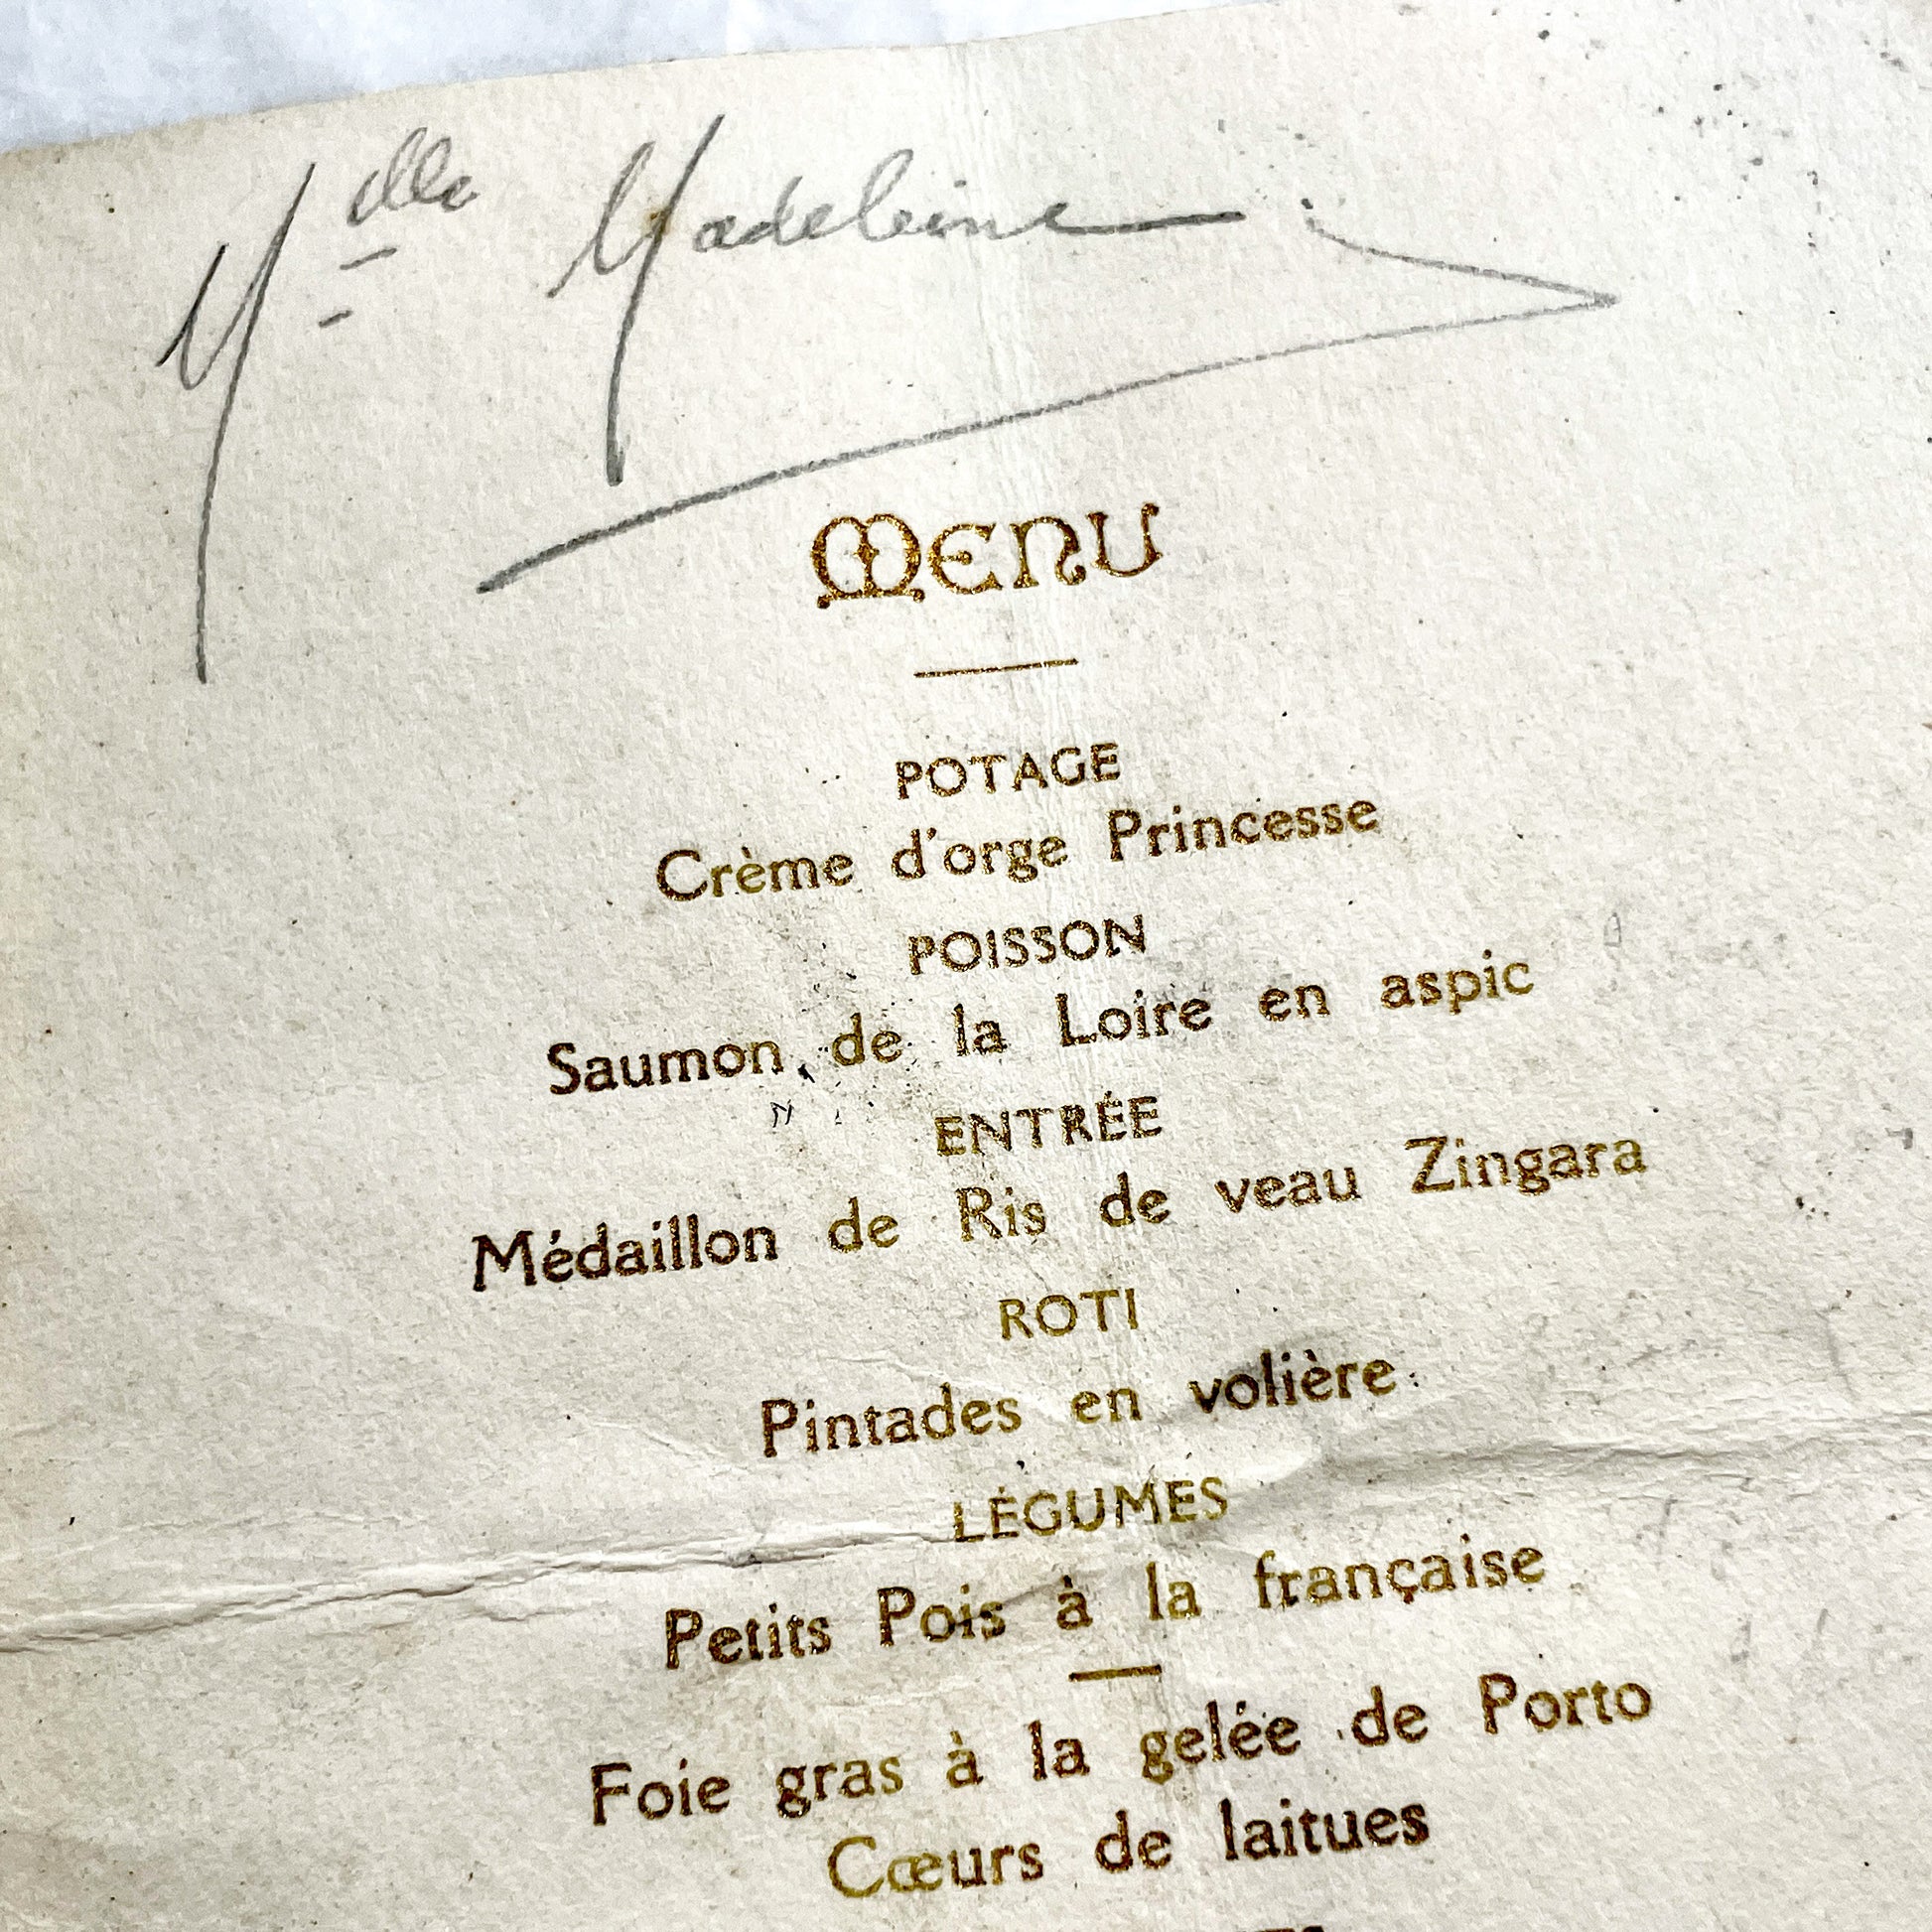 Melle Madeleine
MENU
POTAGE
Crème d'orge Princesse
POISSON
Saumon de la Loire en aspic
ENTRÉE
Médaillon de Ris de veau Zingara
ROTI
Pintades en volière
LÉGUMES
Petits Pois à la française
Foie gras à la gelée de Porto
Cœurs de laitues